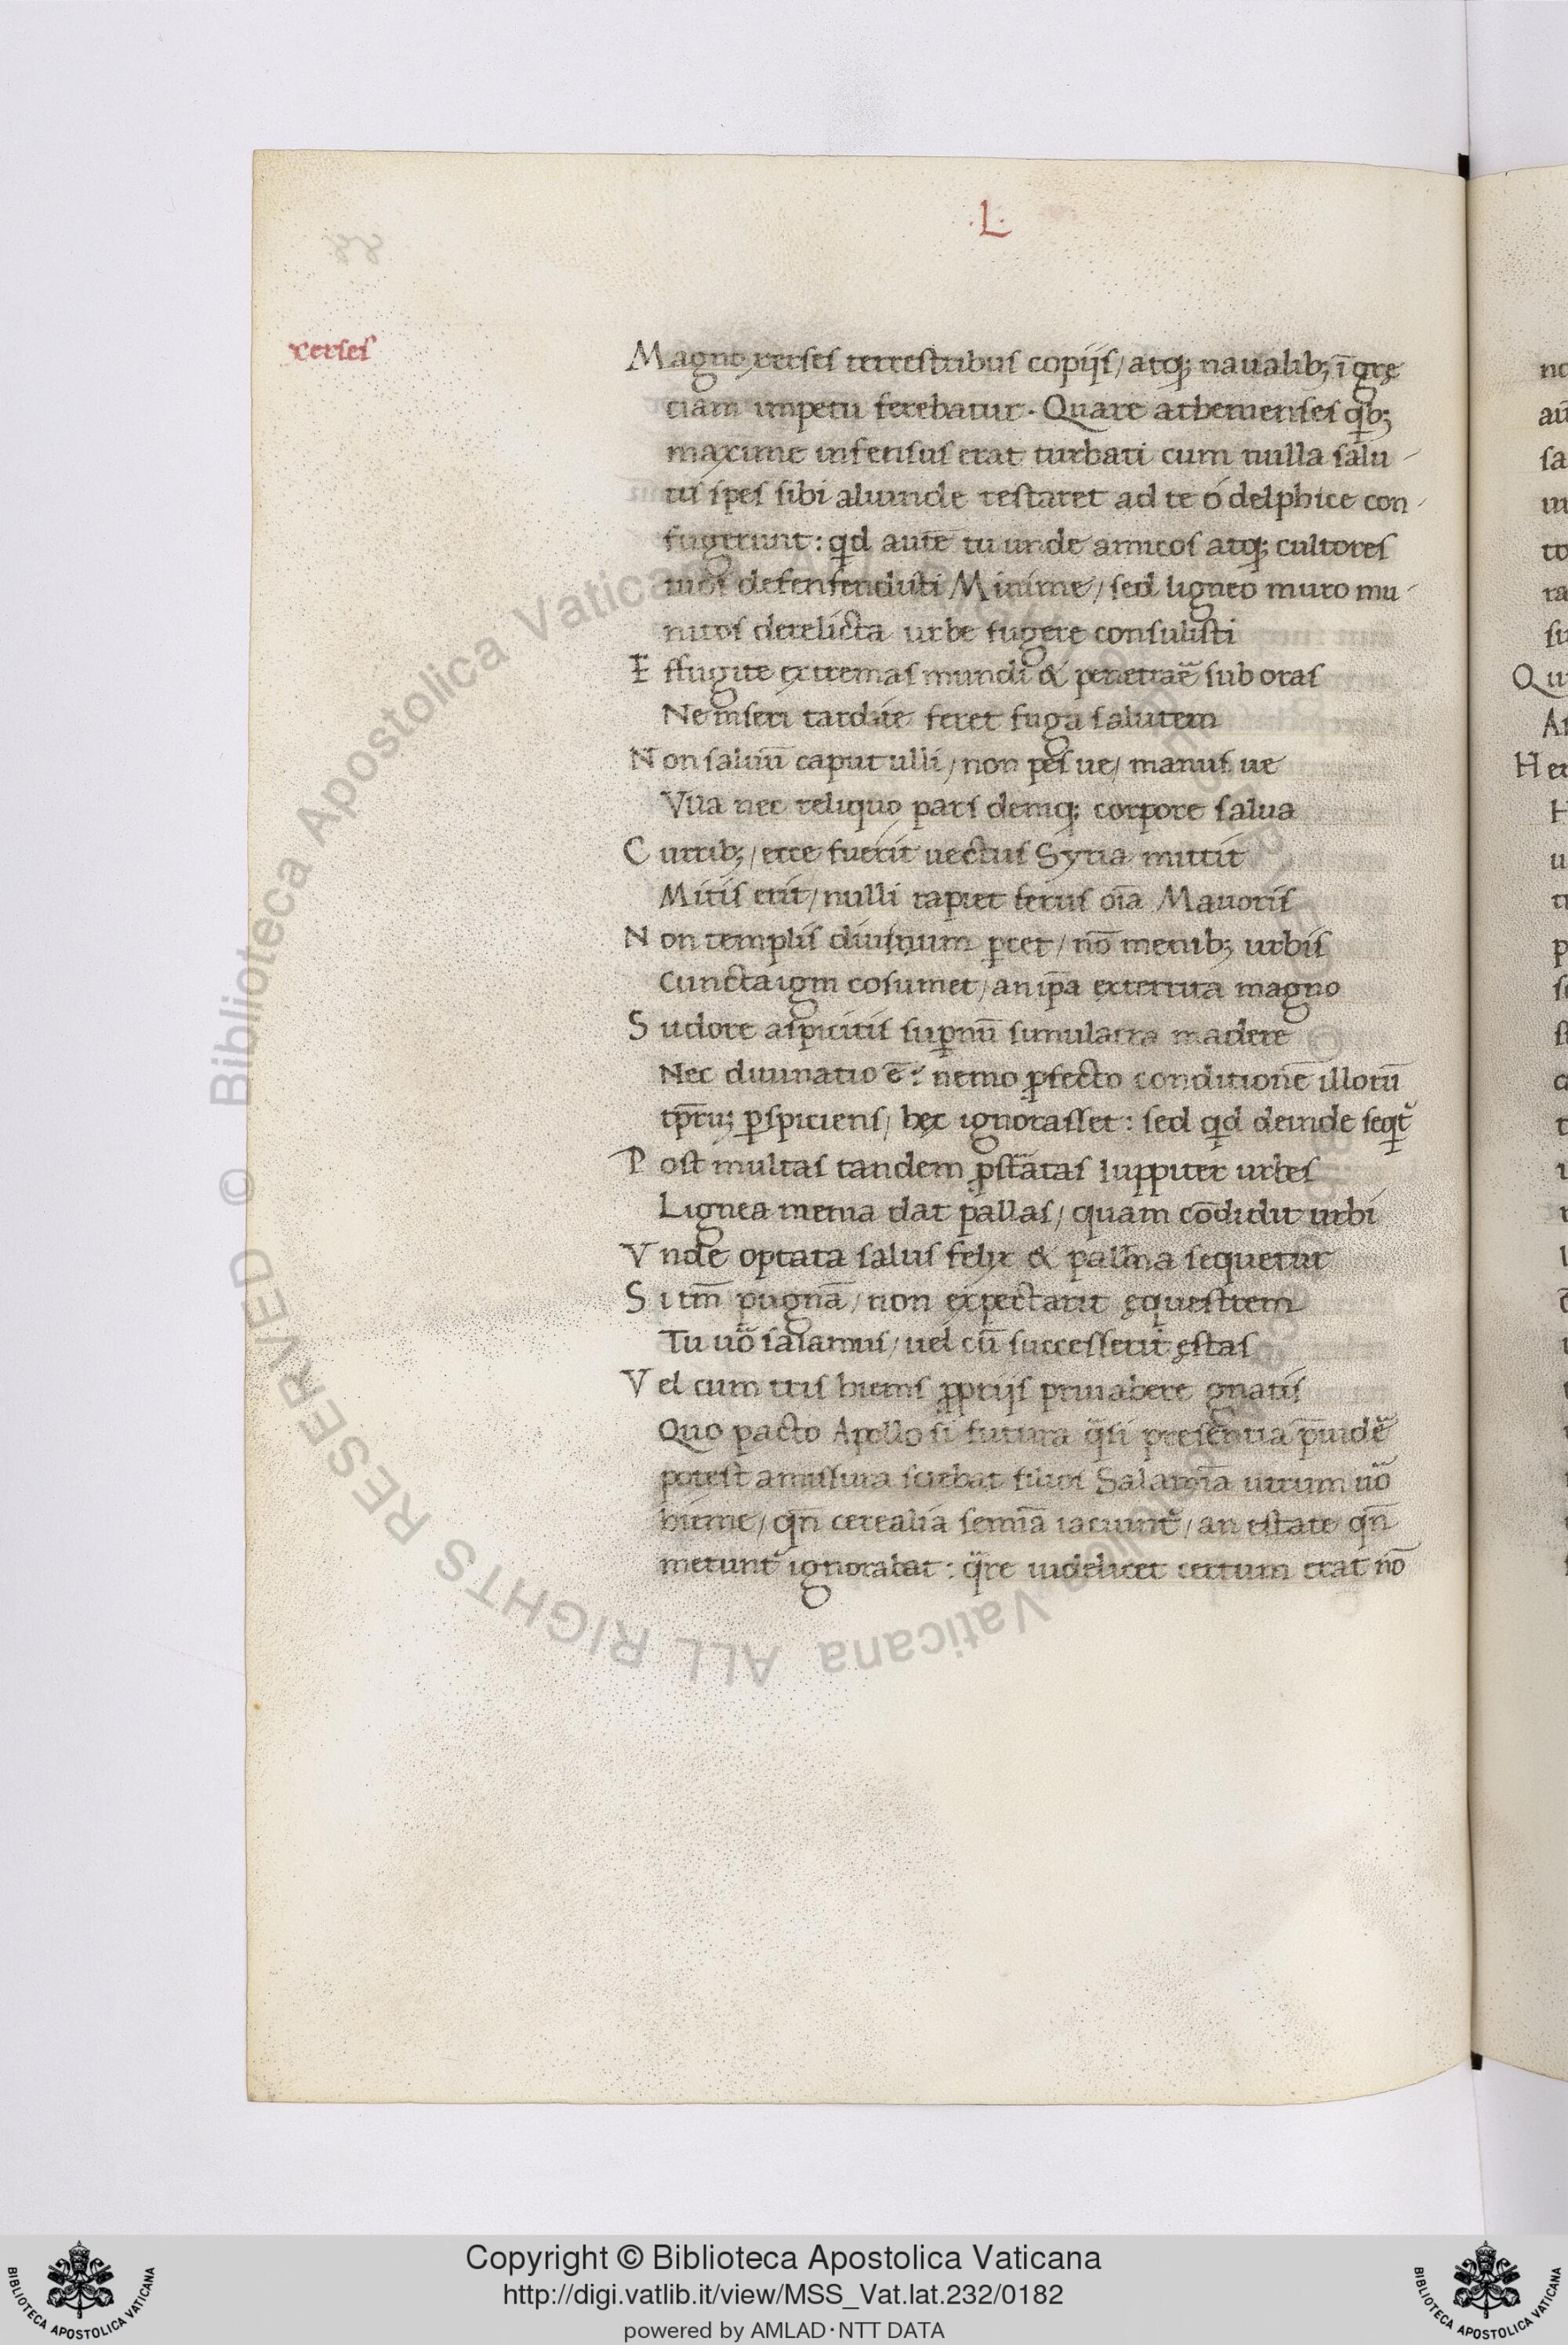 ·L·
xerses
Magno xerses terrestribus copijs/ atq; naualib; ī gre
ciam impetu ferebatur. Quare athenienses qb;
maxime infensus erat turbati cum nulla salu
tis spes sibi aliunde restaret ad te ó delphice con
fugerunt: qd autē tu unde amicos atq; cultores
tuos defensendisti Minime/ sed ligneo muro mu
nitos derelicta urbe fugere consulisti
Effugite extremas mundi & penetrāe sub oras
Ne miseri tardiue feret fuga salutem
Non saluū caput ulli/ non pes ue/ manus ue
Vlla nec reliquo pars deniq; corpore salua
Curib;/ ecce fuerit uectus Syria mittit
Mitis erit/ nulli rapiet ferus oīa Mauoris
Non templis diuinum pcet/ nō menib; urbis
Cuncta igni cosumet/ an ipa exterrita magno
Sudore aspicitis supnū simulacra madere
Nec diuinatio ē: nemo pfecto conditionē illorū
tprū; pspiciens/ hęc ignorasset: sed qd deinde seqt
Post multas tandem pstratas Iuppiter urbes
Lignea menia dat pallas/ quam cōdidit urbi
Vnde optata salus felix & palma sequetur
Si tm̄ pugnā/ non expectarit ęquestrem
Tu uō salamis/ uel cū successerit ęstas
Vel cum tris hiems pprijs priuabere gnatis
Quo pacto Apollo si futura qsi presentia puidē
potest amissura sciebat filios Salamīa utrum uō
hieme/ qn̄ cerealia semīa iaciunt/ an estate qn̄
metunt ignorabat: qre uidelicet certum erat nō
Copyright © Biblioteca Apostolica Vaticana
http://digi.vatlib.it/view/MSS_Vat.lat.232/0182
powered by AMLAD·NTT DATA
BIBLIOTECA APOSTOLICA VATICANA
BIBLIOTECA APOSTOLICA VATICANA
© Biblioteca Apostolica Vaticana ALL RIGHTS RESERVED